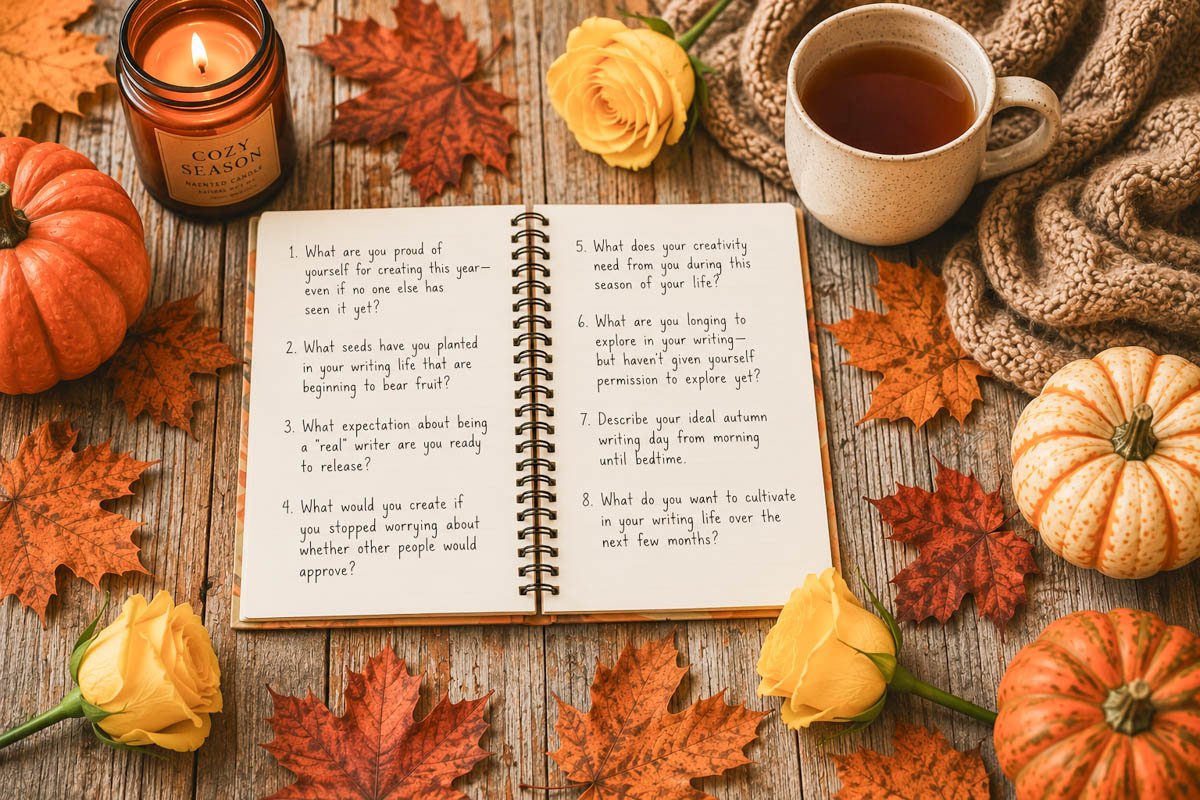 COZY
SEASON
HAENTED CANDLE
NATURAL
1. What are you proud of
yourself for creating this year—
even if no one else has
seen it yet?
2. What seeds have you planted
in your writing life that are
beginning to bear fruit?
3. What expectation about being
a "real" writer are you ready
to release?
4. What would you create if
you stopped worrying about
whether other people would
approve?
5. What does your creativity
need from you during this
season of your life?
6. What are you longing to
explore in your writing—
but haven't given yourself
permission to explore yet?
7. Describe your ideal autumn
writing day from morning
until bedtime.
8. What do you want to cultivate
in your writing life over the
next few months?